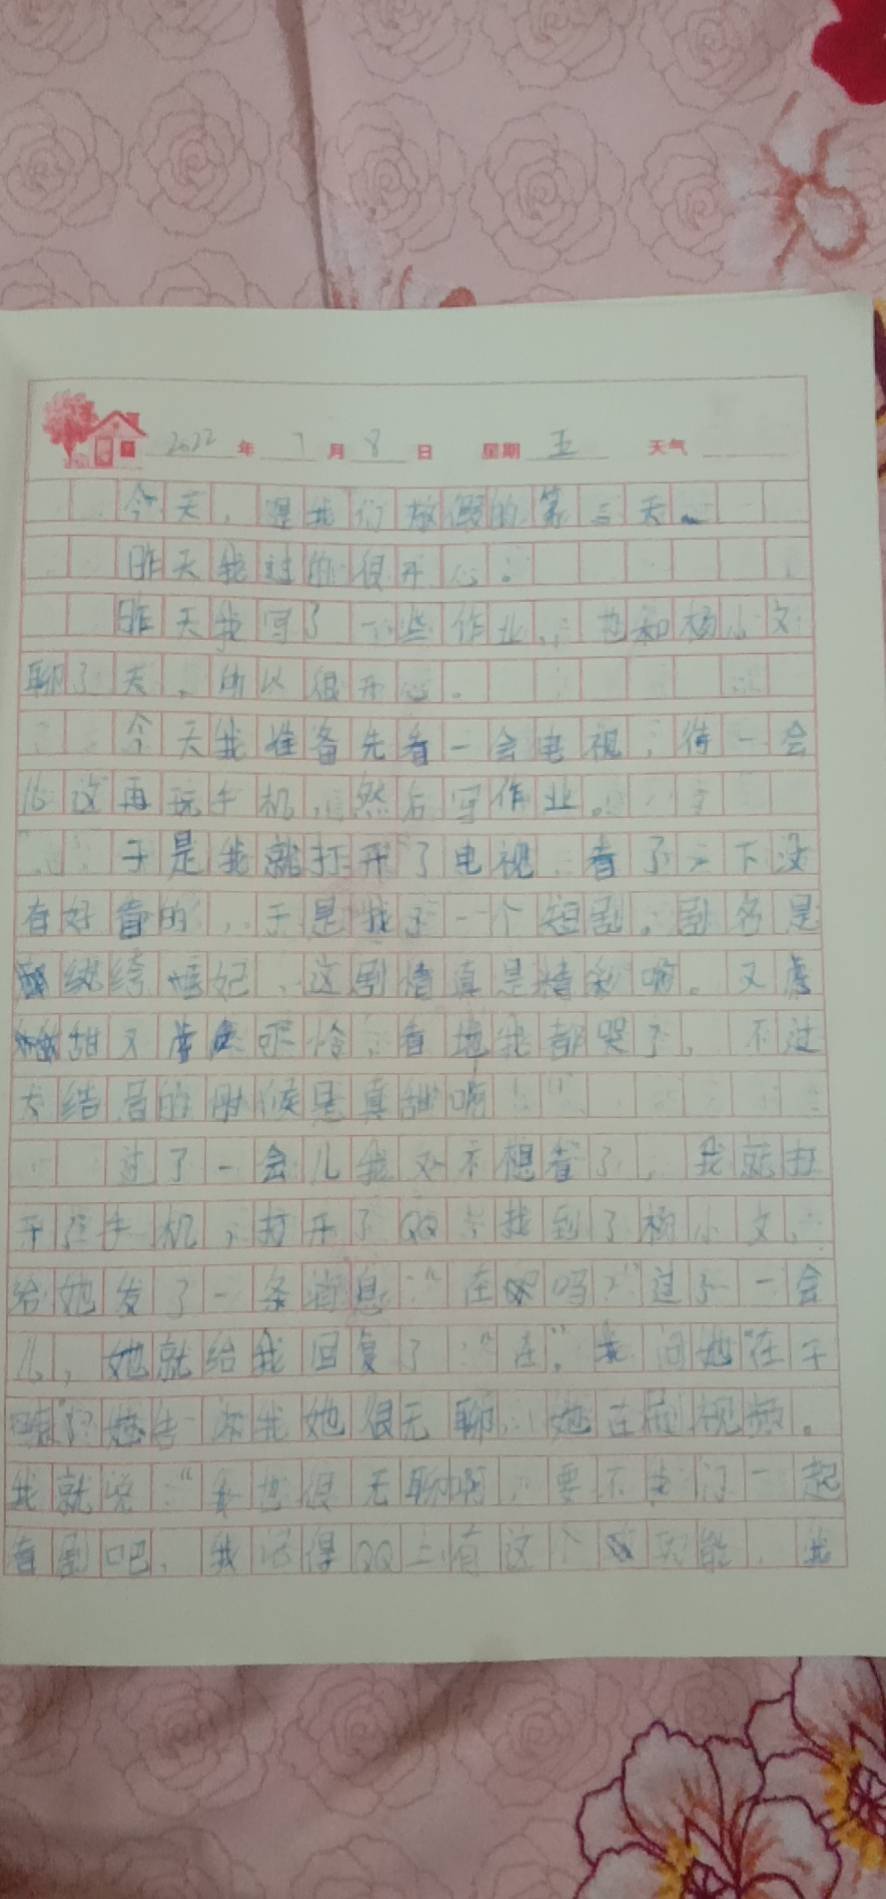 2022年7月8日 星期五 天气
今天,是我们放假的第三天。
昨天我过的很开心。
昨天我写了一些作业,也和杨小文
聊了天,所以很开心。
今天我准备先看一会电视,待一会
再玩手机,然后写作业。
于是我就打开了电视,看了一下没
有好看的,于是找了一个短剧。剧名是
这剧情真是精彩啊。又
甜又 可怜,看地我都哭了,不过
大结局的时候是真甜啊!
过了一会儿我又不想看了,我就打
开了手机,打开了QQ,找到了杨小文,
给她发了一条消息:“在吗?”过了一会
儿,她就给我回复了:“在”。我问她“在干
嘛”?她告诉我她很无聊,她在刷视频。
我就说:“我也很无聊啊,要不我们一起
看剧吧,我记得QQ上有这个功能,我